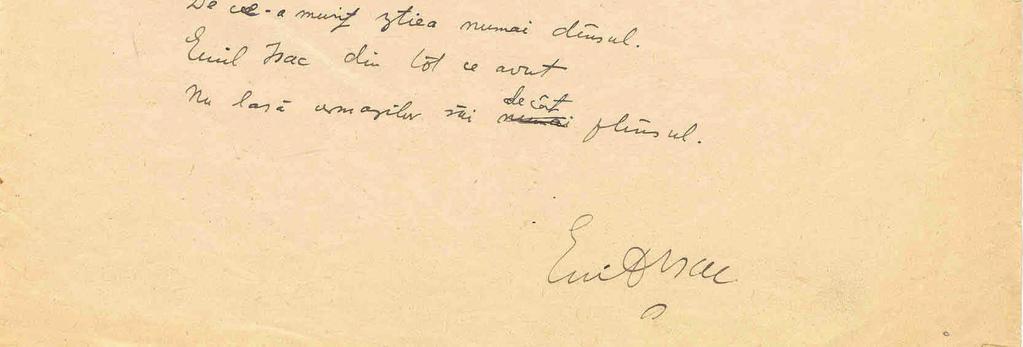 De ce-a murit știea numai dînsul.
Emil Isac din tot ce avut
Nu lasă urmașilor săi decât numai plînsul.
Emil Isac